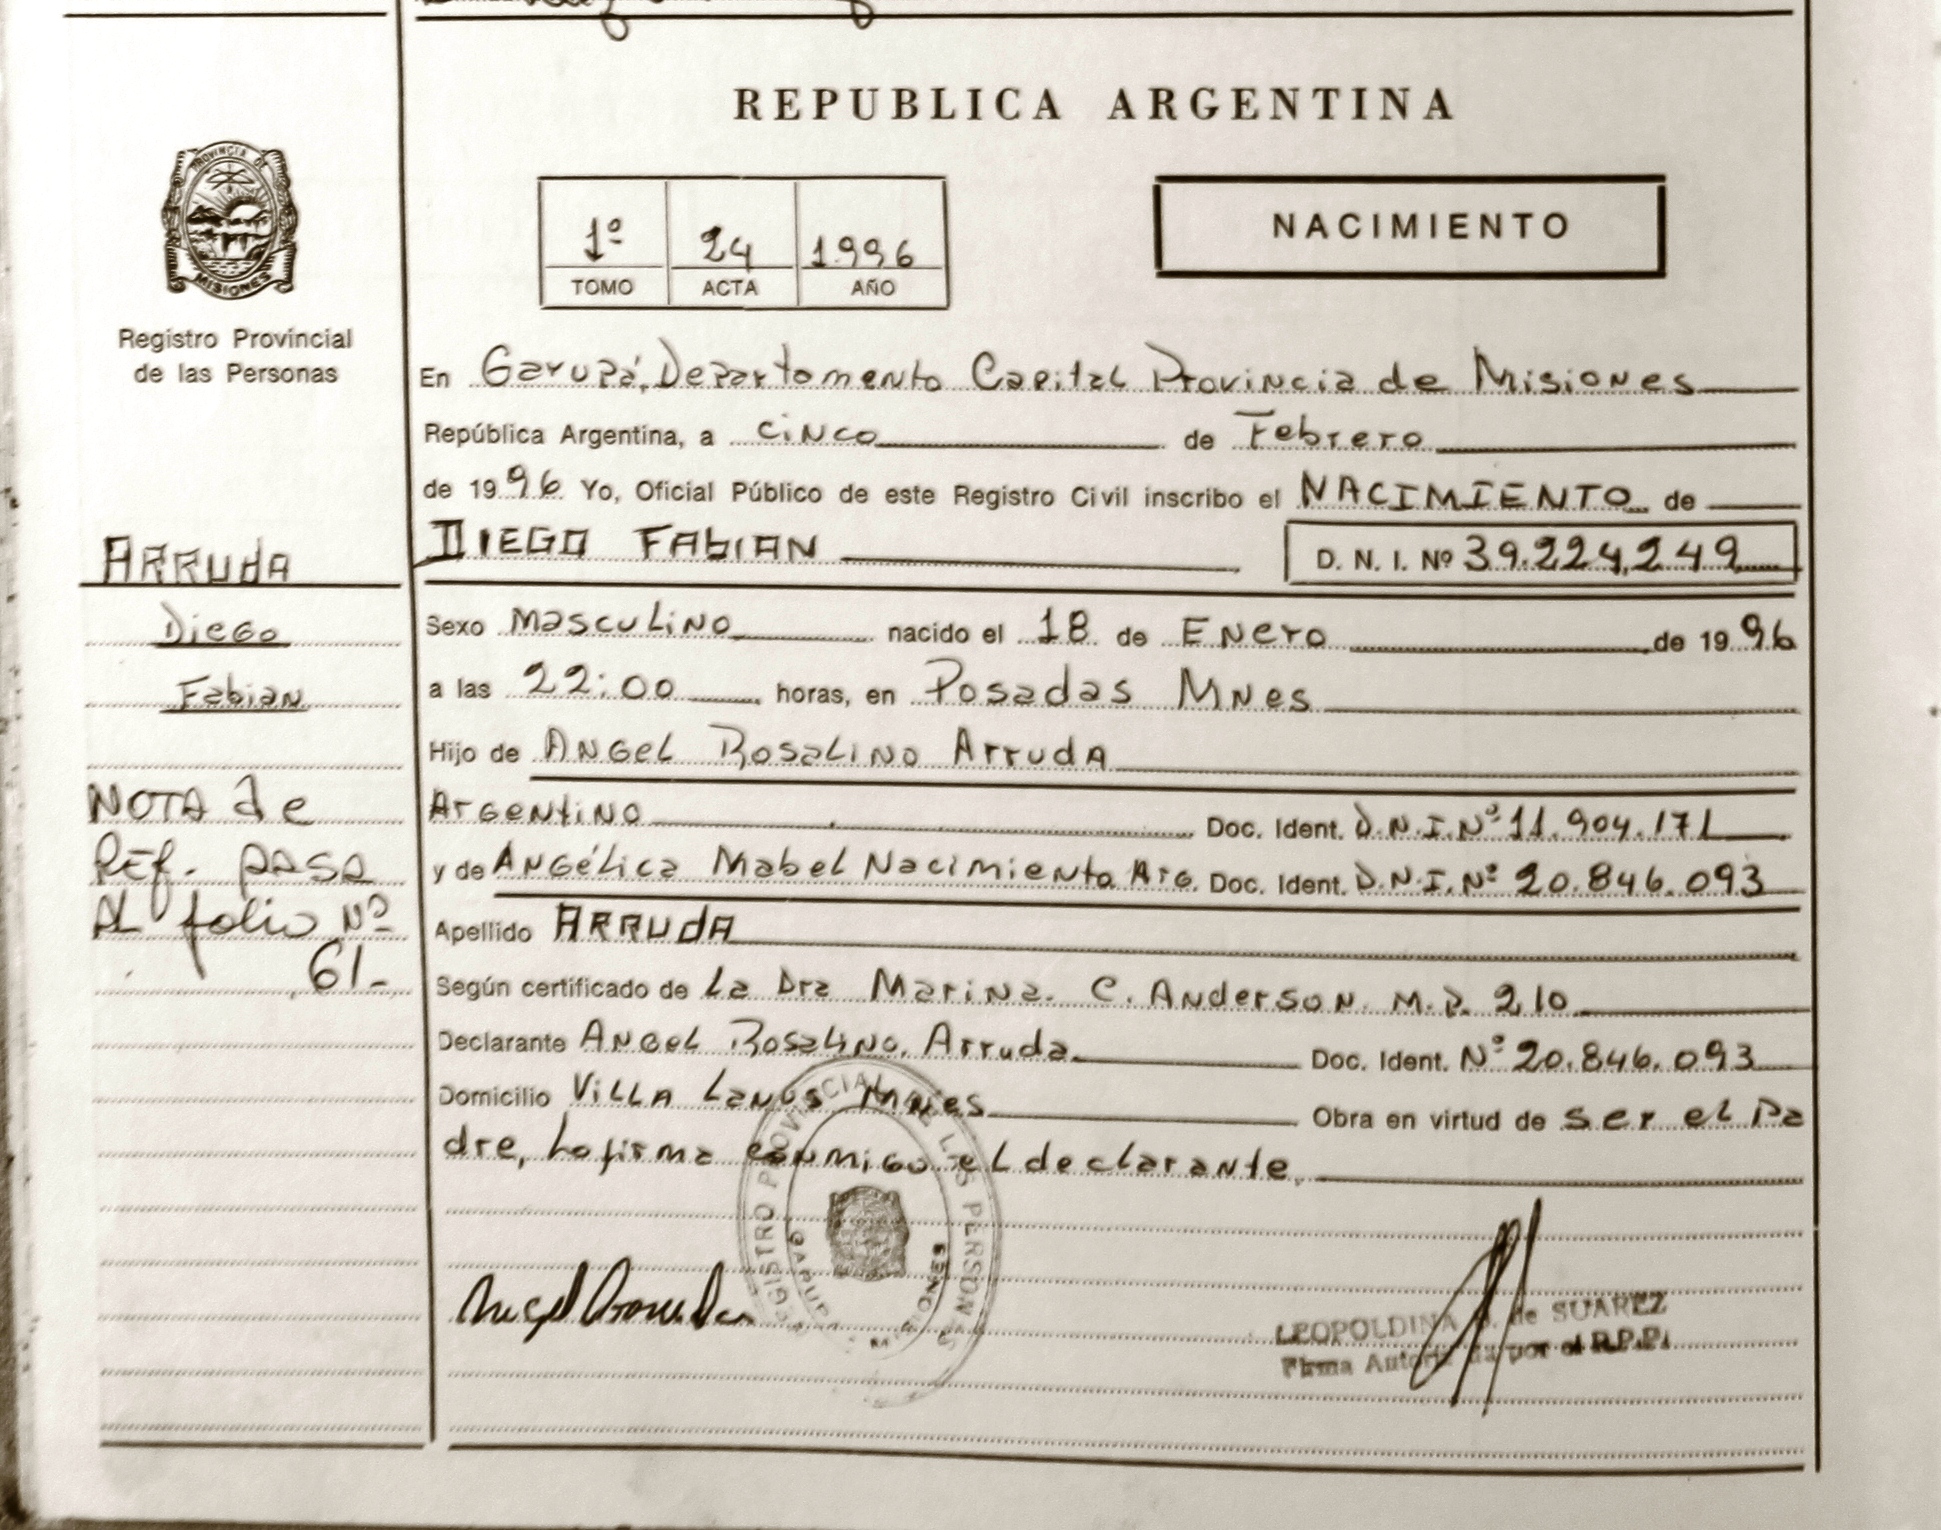 REPUBLICA ARGENTINA
PROVINCIA DE
MISIONES
Registro Provincial
de las Personas
1º 24 1996
TOMO ACTA AÑO
NACIMIENTO
En Garupá, Departamento Capital Provincia de Misiones
República Argentina, a cinco de Febrero
de 1996 Yo, Oficial Público de este Registro Civil inscribo el NACIMIENTO de
DIEGO FABIAN D. N. I. Nº 39.224.249
Sexo Masculino nacido el 18 de Enero de 1996
a las 22:00 horas, en Posadas Mnes
Hijo de Angel Rosalino Arruda
Argentino Doc. Ident. D.N.I. Nº 11.904.171
y de Angélica Mabel Nacimiento Arg. Doc. Ident. D.N.I. Nº 20.846.093
Apellido ARRUDA
Según certificado de La Dra Marina. C. Anderson. M.P. 210
Declarante Angel Rosalino. Arruda Doc. Ident. Nº 20.846.093
Domicilio Villa Lanus Mnes Obra en virtud de ser el Pa
dre, Lo firma conmigo el declarante.
ARRUDA
Diego
Fabian
NOTA de
REF. PASA
AL folio Nº
61-
REGISTRO PROVINCIAL DE LAS PERSONAS
GARUPA MISIONES
LEOPOLDINA de SUAREZ
Firma Autorizada por el R.P.P.